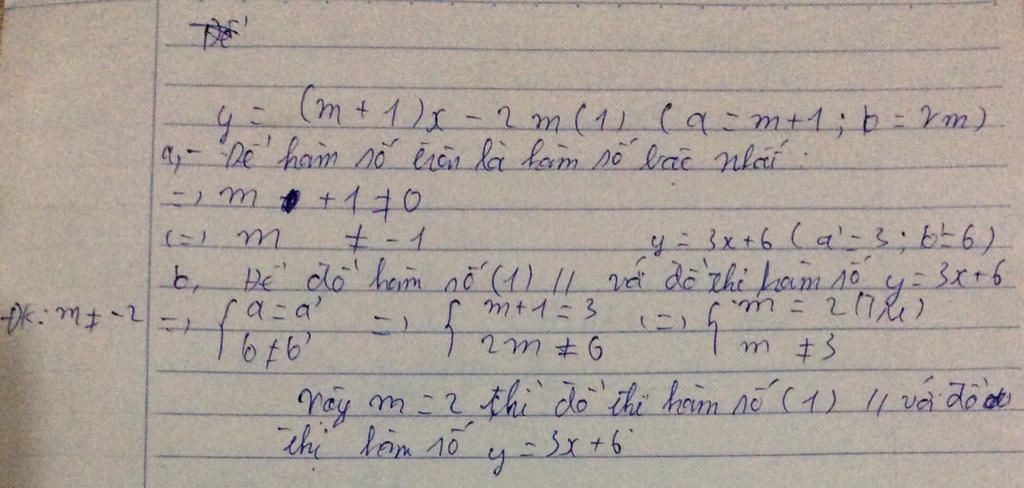 Để
y = (m + 1)x - 2m (1) (a = m+1 ; b = 2m)
a, - Để hàm số trên là hàm số bậc nhất :
=> m + 1 ≠ 0
(=) m ≠ -1
y = 3x+6 (a' = 3 ; b' = 6)
b, Để đồ hàm số (1) // với đồ thị hàm số y = 3x+6
ĐK: m ≠ -2 => { a = a' => { m+1 = 3 (=) { m = 2 (TM)
b ≠ b' 2m ≠ 6 m ≠ 3
Vậy m = 2 thì đồ thị hàm số (1) // với đồ
thị hàm số y = 3x+6